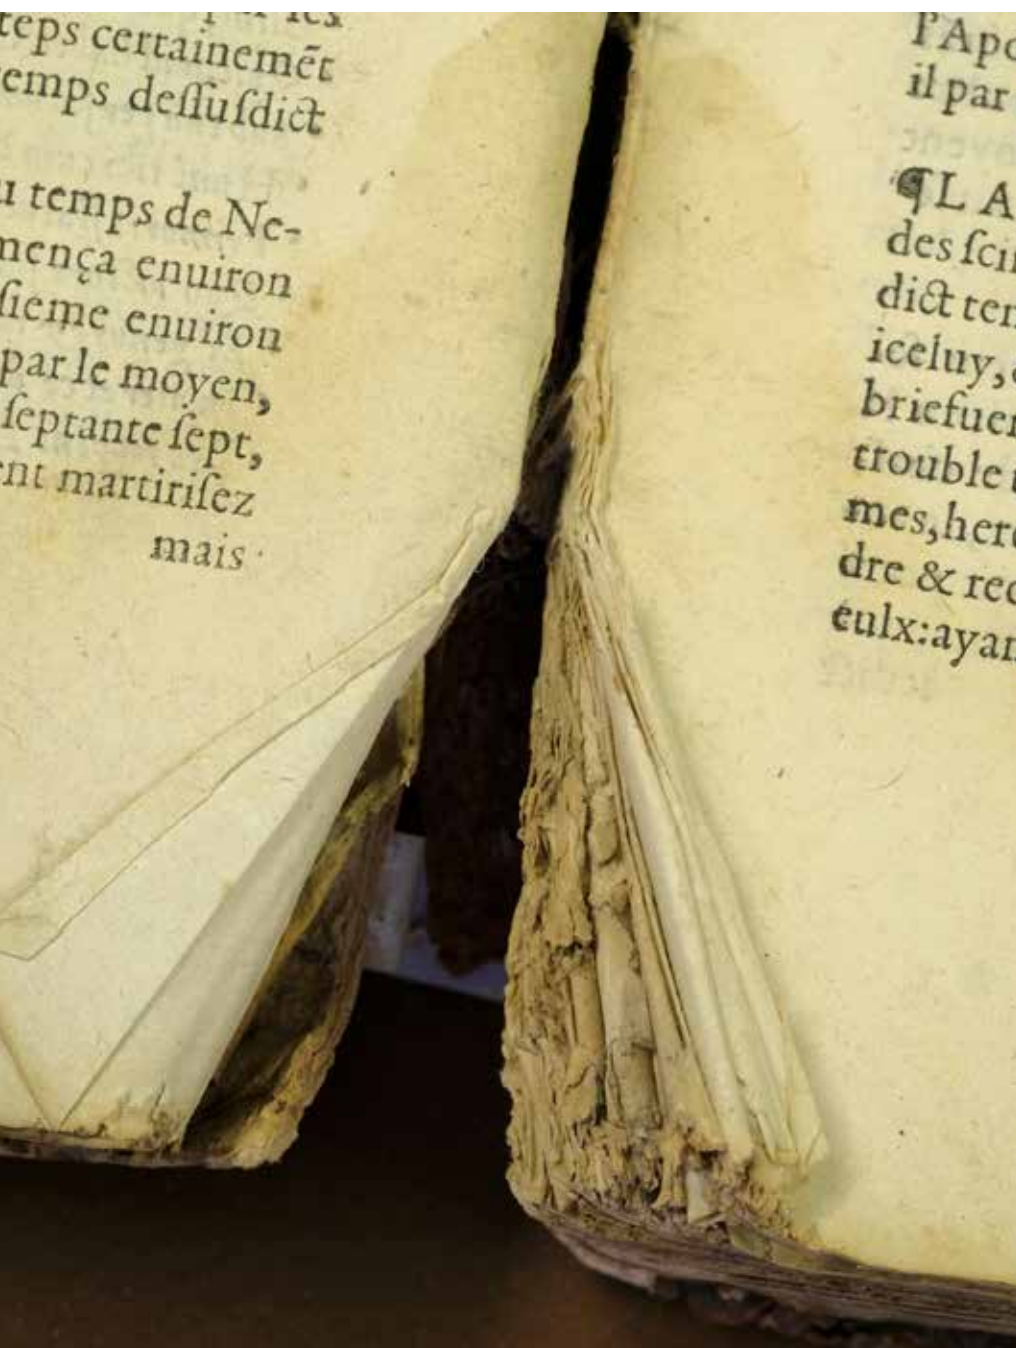 teps certainemẽt
emps deſſuſdict
u temps de Ne-
mença enuiron
ſieme enuiron
par le moyen,
ſeptante ſept,
ent martiriſez
mais
l'Apo
il par
¶L A
des ſci
dict ten
iceluy,
briefuer
trouble
mes,here
dre & rec
eulx:ayan